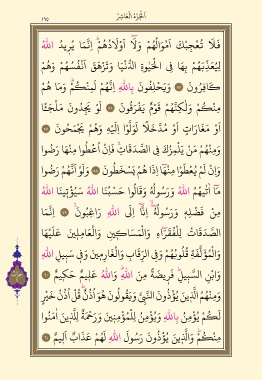 الجزء العاشر
١٩٥
فَلَا تُعْجِبْكَ اَمْوَالُهُمْ وَلَٓا اَوْلَادُهُمْ اِنَّمَا يُرٖيدُ اللّٰهُ
لِيُعَذِّبَهُمْ بِهَا فِى الْحَيٰوةِ الدُّنْيَا وَتَزْهَقَ اَنْفُسُهُمْ وَهُمْ
كَافِرُونَ ﴿٥٥﴾ وَيَحْلِفُونَ بِاللّٰهِ اِنَّهُمْ لَمِنْكُمْ وَمَا هُمْ
مِنْكُمْ وَلٰكِنَّهُمْ قَوْمٌ يَفْرَقُونَ ﴿٥٦﴾ لَوْ يَجِدُونَ مَلْجَـًٔا
اَوْ مَغَارَاتٍ اَوْ مُدَّخَلًا لَوَلَّوْا اِلَيْهِ وَهُمْ يَجْمَحُونَ ﴿٥٧﴾
وَمِنْهُمْ مَنْ يَلْمِزُكَ فِى الصَّدَقَاتِ فَاِنْ اُعْطُوا مِنْهَا رَضُوا
وَاِنْ لَمْ يُعْطَوْا مِنْهَٓا اِذَا هُمْ يَسْخَطُونَ ﴿٥٨﴾ وَلَوْ اَنَّهُمْ رَضُوا
مَٓا اٰتٰيهُمُ اللّٰهُ وَرَسُولُهُ وَقَالُوا حَسْبُنَا اللّٰهُ سَيُؤْتٖينَا اللّٰهُ
مِنْ فَضْلِهٖ وَرَسُولُهُٓ اِنَّٓا اِلَى اللّٰهِ رَاغِبُونَ ﴿٥٩﴾ اِنَّمَا
الصَّدَقَاتُ لِلْفُقَرَٓاءِ وَالْمَسَاكٖينِ وَالْعَامِلٖينَ عَلَيْهَا
وَالْمُؤَلَّفَةِ قُلُوبُهُمْ وَفِى الرِّقَابِ وَالْغَارِمٖينَ وَفٖى سَبٖيلِ اللّٰهِ
وَابْنِ السَّبٖيلِ فَرٖيضَةً مِنَ اللّٰهِ وَاللّٰهُ عَلٖيمٌ حَكٖيمٌ ﴿٦٠﴾
وَمِنْهُمُ الَّذٖينَ يُؤْذُونَ النَّبِىَّ وَيَقُولُونَ هُوَ اُذُنٌ قُلْ اُذُنُ خَيْرٍ
لَكُمْ يُؤْمِنُ بِاللّٰهِ وَيُؤْمِنُ لِلْمُؤْمِنٖينَ وَرَحْمَةٌ لِلَّذٖينَ اٰمَنُوا
مِنْكُمْ وَالَّذٖينَ يُؤْذُونَ رَسُولَ اللّٰهِ لَهُمْ عَذَابٌ اَلٖيمٌ ﴿٦١﴾